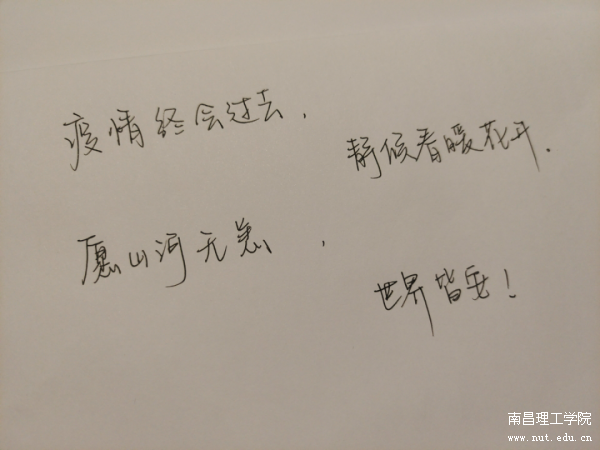 疫情终会过去,
静候春暖花开.
愿山河无恙,
世界皆安!
南昌理工学院
www.nut.edu.cn